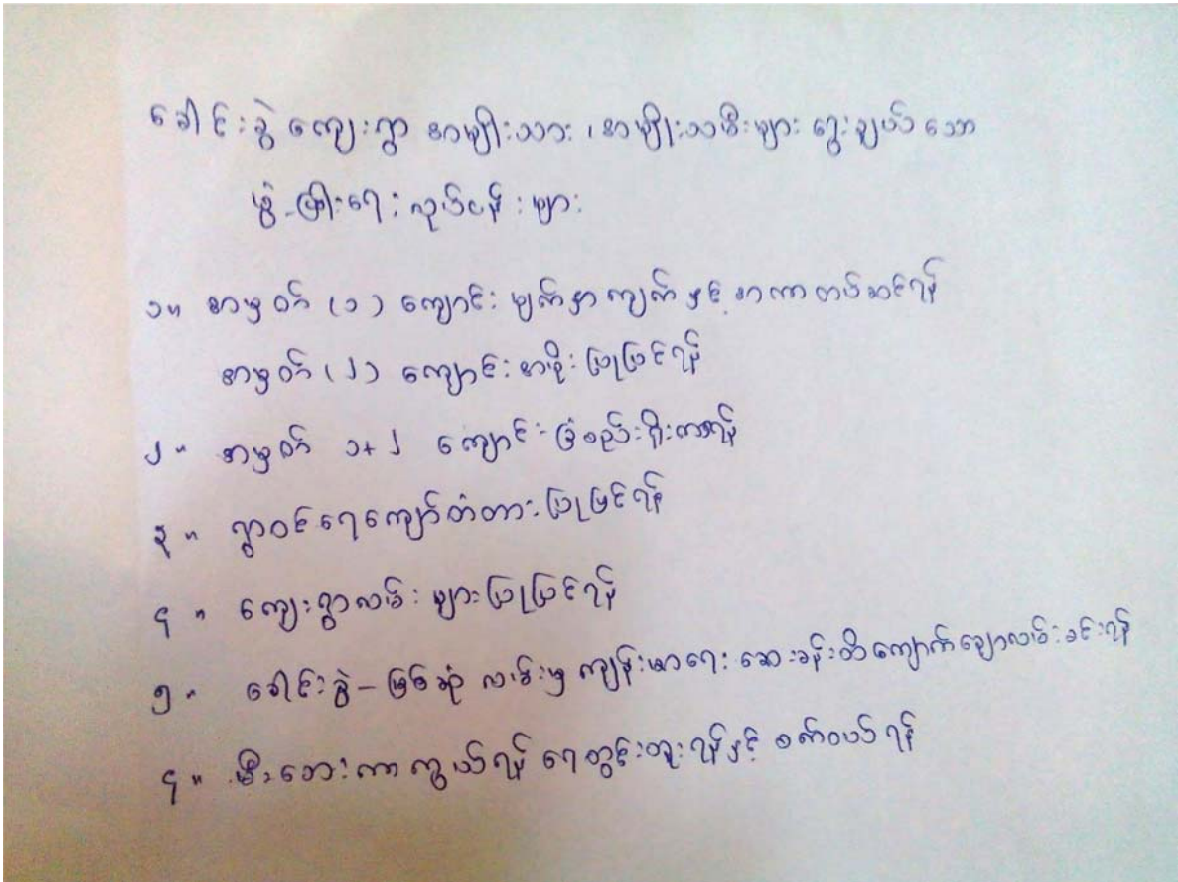 ခေါင်းခွဲ ကျေးရွာ အမျိုးသား၊ အမျိုးသမီးများ ရွေးချယ်သော
ဖွံ့ဖြိုးရေး လုပ်ငန်းများ
၁။ အမှတ် (၁) ကျောင်း မျက်နှာကျက်နှင့် အကာတပ်ဆင်ရန်
အမှတ် (၂) ကျောင်းအမိုး ပြုပြင်ရန်
၂။ အမှတ် ၁+၂ ကျောင်း ခြံစည်းရိုးကာရန်
၃။ ရွာဝင်ရေကျော်တံတားပြုပြင်ရန်
၄။ ကျေးရွာလမ်းများပြုပြင်ရန်
၅။ ခေါင်းခွဲ – မြစ်ဆုံ လမ်းမှ ကျန်းမာရေး ဆေးခန်းထိကျောက်ချောလမ်းခင်းရန်
၄။ မီးဘေးကာကွယ်ရန် ရေတွင်းတူးရန်နှင့် စက်ဝယ်ရန်